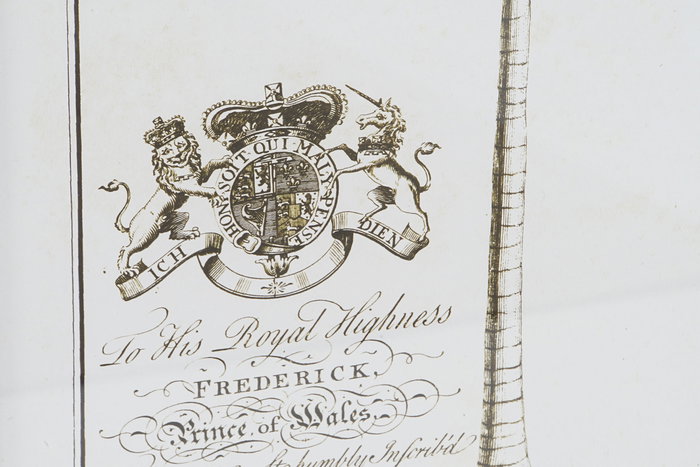 HONI SOIT QUI MAL Y PENSE
ICH DIEN
To His Royal Highness
FREDERICK,
Prince of Wales,
humbly Inscrib'd